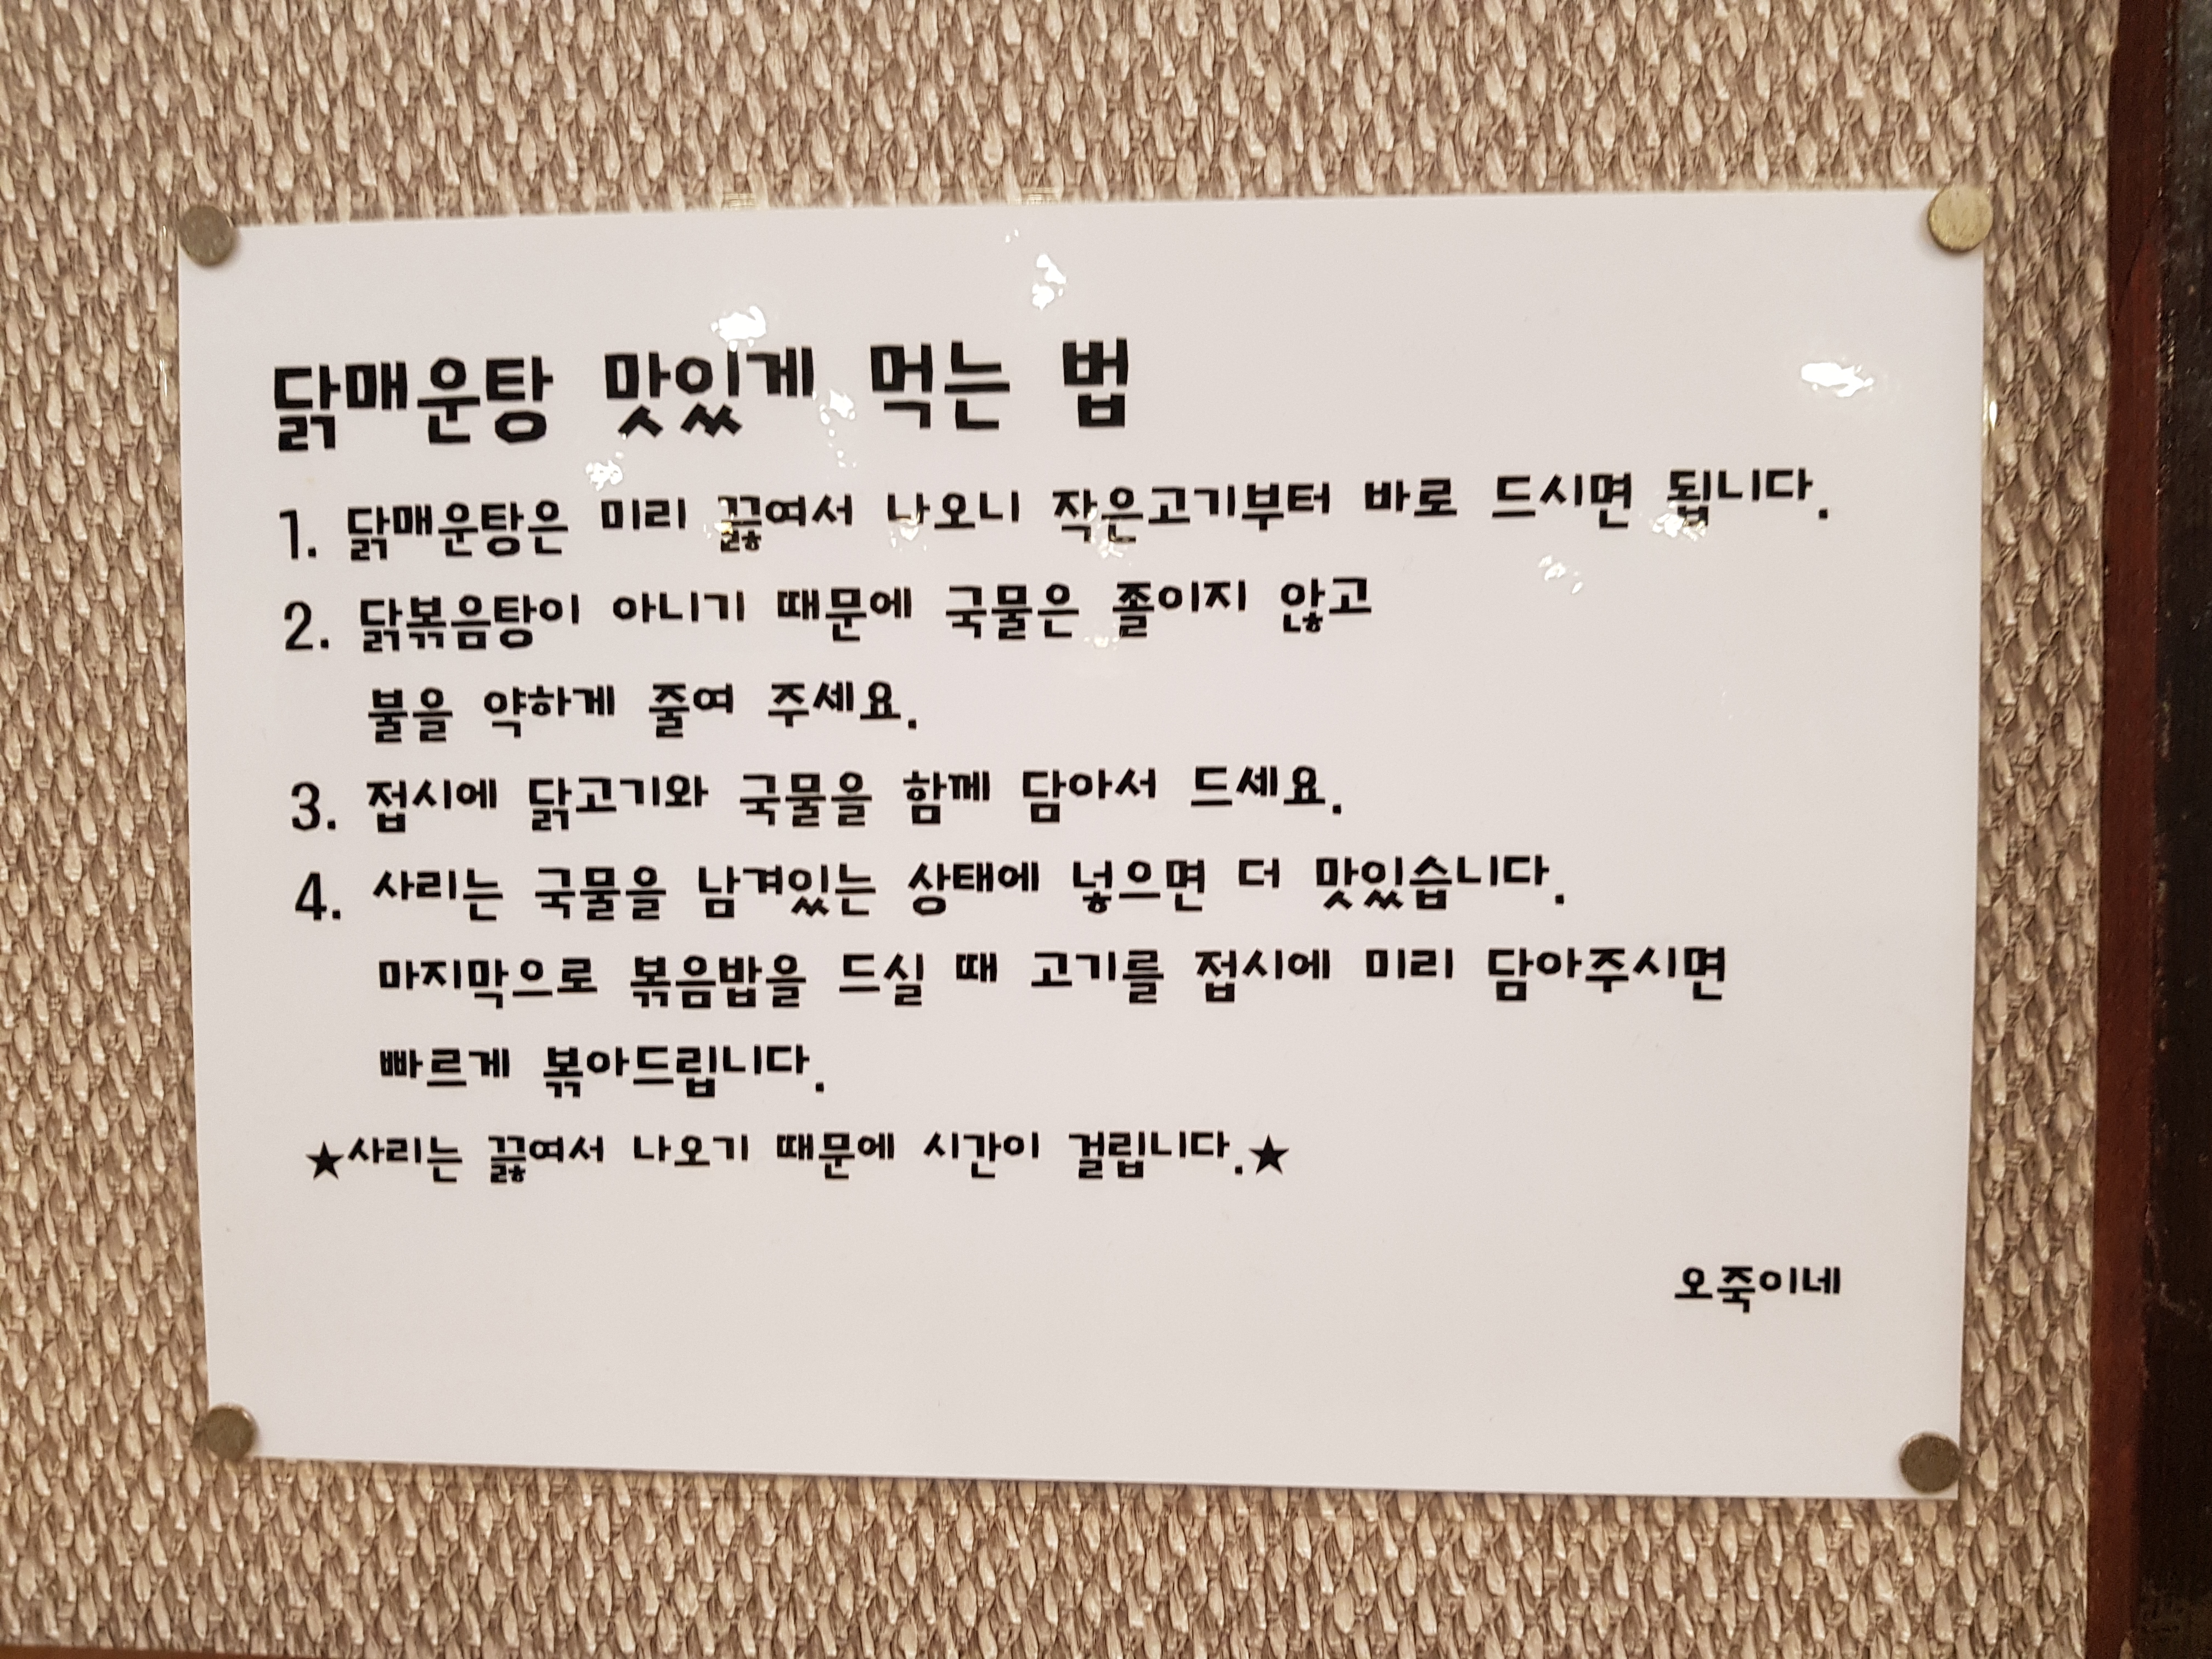 닭매운탕 맛있게 먹는 법
1. 닭매운탕은 미리 끓여서 나오니 작은고기부터 바로 드시면 됩니다.
2. 닭볶음탕이 아니기 때문에 국물은 졸이지 않고
불을 약하게 줄여 주세요.
3. 접시에 닭고기와 국물을 함께 담아서 드세요.
4. 사리는 국물을 남겨있는 상태에 넣으면 더 맛있습니다.
마지막으로 볶음밥을 드실 때 고기를 접시에 미리 담아주시면
빠르게 볶아드립니다.
★사리는 끓여서 나오기 때문에 시간이 걸립니다.★
오죽이네